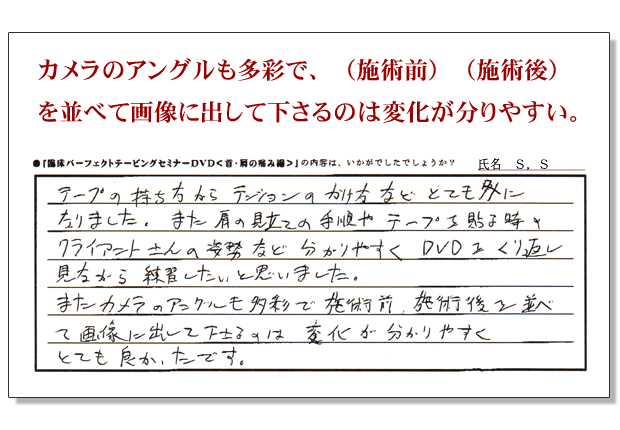 カメラのアングルも多彩で、（施術前）（施術後）
を並べて画像に出して下さるのは変化が分りやすい。
●「臨床パーフェクトテーピングセミナーDVD＜首・肩の痛み編＞」の内容は、いかがでしたでしょうか？ 氏名 S，S
テープの持ち方から テンションのかけ方など とても為に
なりました。また肩の見立ての手順や テープを貼る時の
クライアントさんの姿勢など 分かりやすく DVDをくり返し
見ながら 練習したいと思いました。
またカメラのアングルも多彩で 施術前、施術後を並べ
て画像に出して下さるのは 変化が分かりやすく
とても良かったです。